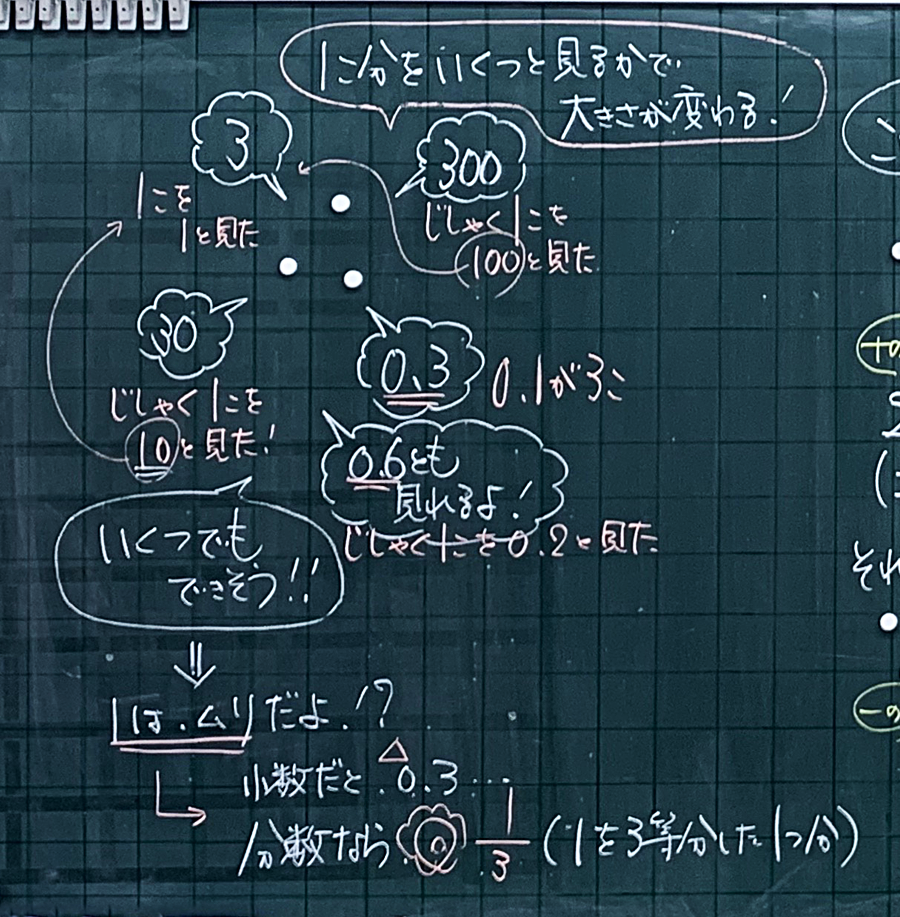 1こ分をいくつと見るかで
大きさが変わる!
3
1こを
1と見た
300
じしゃく1こを
100と見た
30
じしゃく1こを
10と見た!
0.3
0.1が3こ
0.6とも
見れるよ!
じしゃく1こを0.2と見た
いくつでも
できそう!!
⇓
1は.ムリだよ.!?
小数だと △ 0.3…
分数なら 1/3 (1を3等分した1つ分)
こ
+の
(
それ
-の